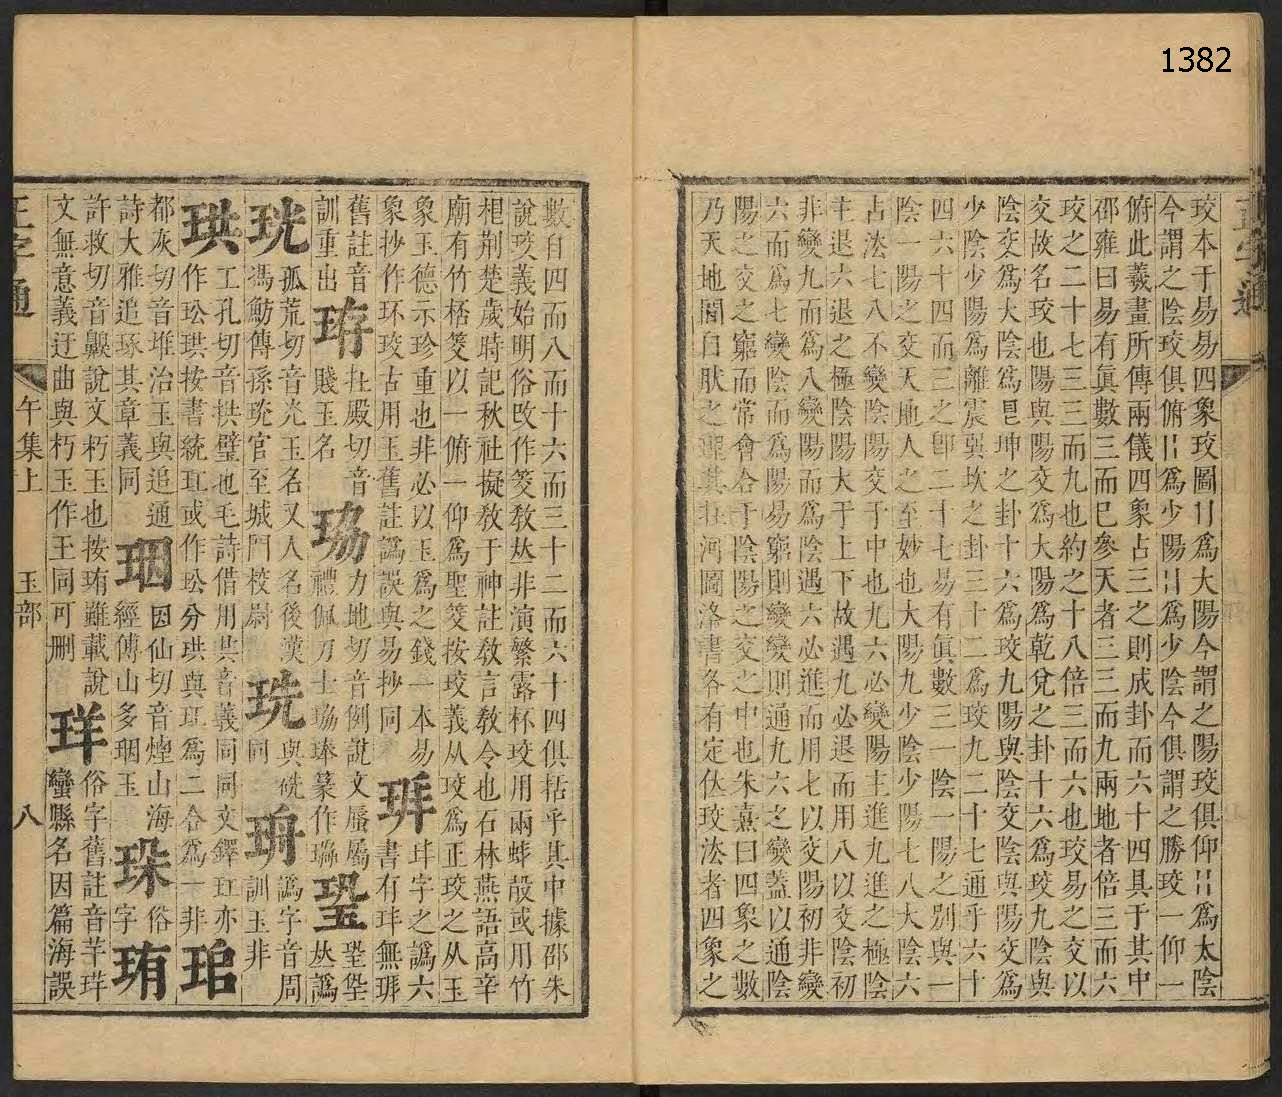 1382
正字通
珓本于易易四象珓圖為大陽今謂之陽珓俱仰為太陰
今謂之陰珓俱俯為少陽為少陰今俱謂之勝珓一仰一
俯此羲畫所傳兩儀四象占三之則成卦而六十四具于其中
邵雍曰易有眞數三而已參天者三三而九兩地者倍三而六
珓之二十七三三而九也約之十八倍三而六也珓易之交以
交故名珓也陽與陽交為大陽為乾兌之卦十六為珓九陰與
陰交為大陰為坤之卦十六為珓九陽與陰交陰與陽交為
少陰少陽為離震巽坎之卦三十二為珓九二十七通乎六十
四六十四而三之卽二十七易有眞數三一陰一陽之別與一
陰一陽之交天地人之至妙也大陽九少陰少陽七八大陰六
占法七八不變陰陽交于中也九六必變陽主進九進之極陰
主退六退之極陰陽大于上下故遇九必退而用八以交陰初
非變九而為八變陽而為陰遇六必進而用七以交陽初非變
六而為七變陰而為陽易窮則變變則通九六之變蓋以通陰
陽之交之窮而常會合于陰陽之交之中也朱熹曰四象之數
乃天地閒自肰之理其在河圖洛書各有定佽珓法者四象之
數自四而八而十六而三十二而六十四俱括乎其中據邵朱
說珓義始明俗改作筊教夶非演繁露杯珓用兩蚌殼或用竹
根荆楚歲時記秋社擬教于神註教言教令也石林燕語高辛
廟有竹桮筊以一俯一仰為聖筊按珓義从珓為正珓之从玉
象玉德示珍重也非必以玉為之錢一本易
象抄作环珓古用玉舊註譌誤與易抄同 琲 玤字之譌六
書有玤無琲
舊註音
訓重出 珔 杜殿切音
賤玉名 珕 力地切音例說文蜃屬
禮佩刀士珕琫篆作珕 巩 夶譌
珖 孤荒切音光玉名又人名後漢
馮魴傳孫珖官至城門校尉 珗 與硄
同 珘 譌字音周
訓玉非
珙 工孔切音拱璧也毛詩借用共音義同同文鐸㺬亦
作玜珙按書統㺬或作玜分珙與㺬為二合為一非 珆
都灰切音堆治玉與追通
詩大雅追琢其章義同 珚 因仙切音煙山海
經傅山多珚玉 珠 俗
字 珛
許救切音齅說文朽玉也按珛難載說
文無意義迂曲與朽玉作王同可删 珜 俗字舊註音羊珜
蠻縣名因篇海誤
正字通
午集上
玉部
八